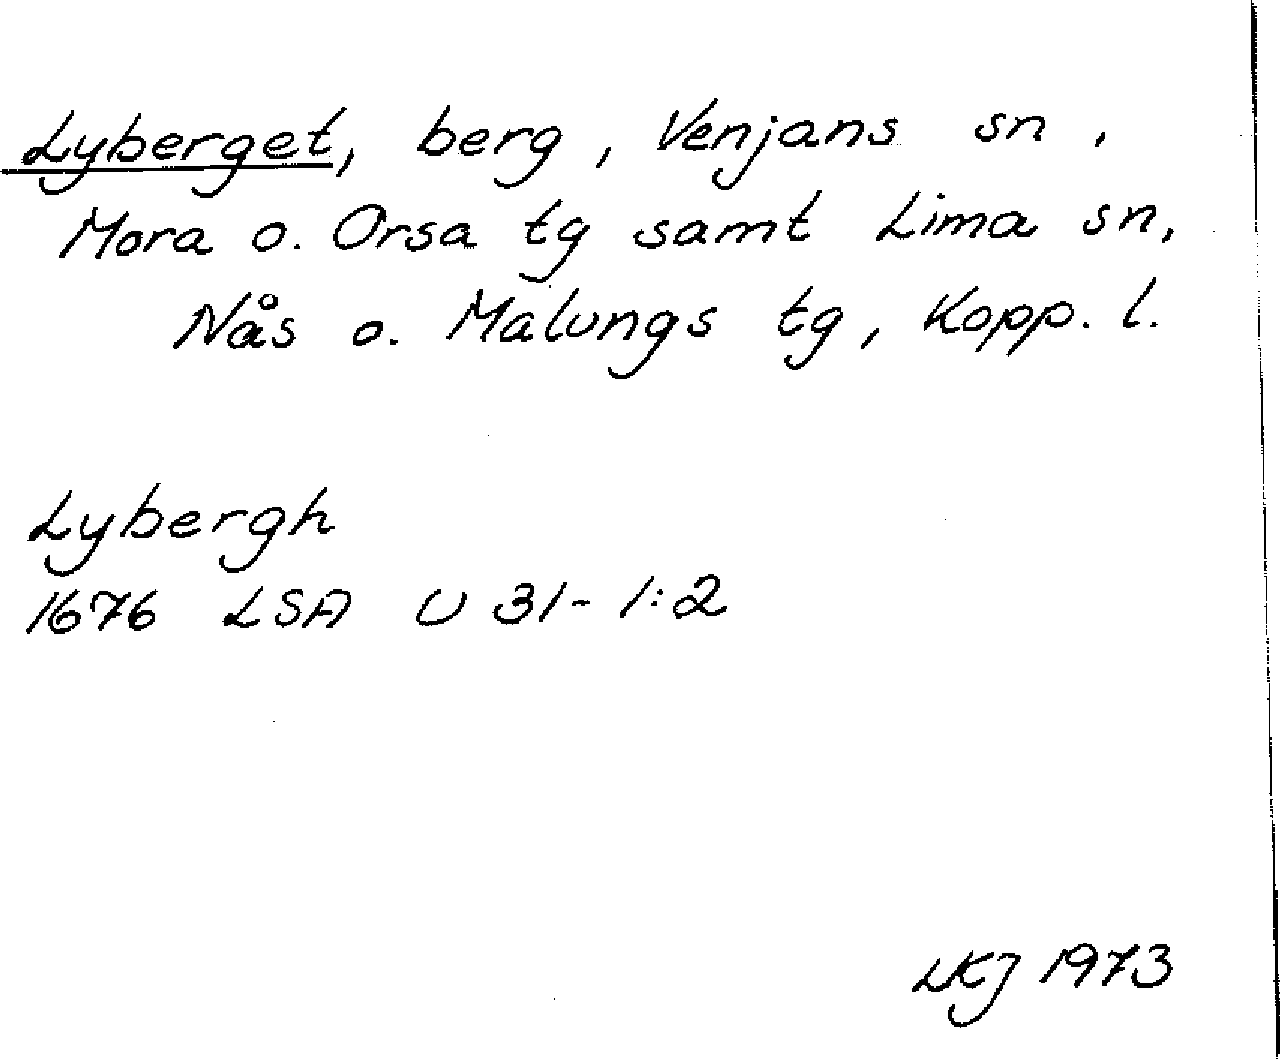 Lyberget, berg, Venjans sn,
Mora o. Orsa tg samt Lima sn,
Nås o. Malungs tg, Kopp. l.
Lybergh
1676 LSA U 31-1:2
LKJ 1973